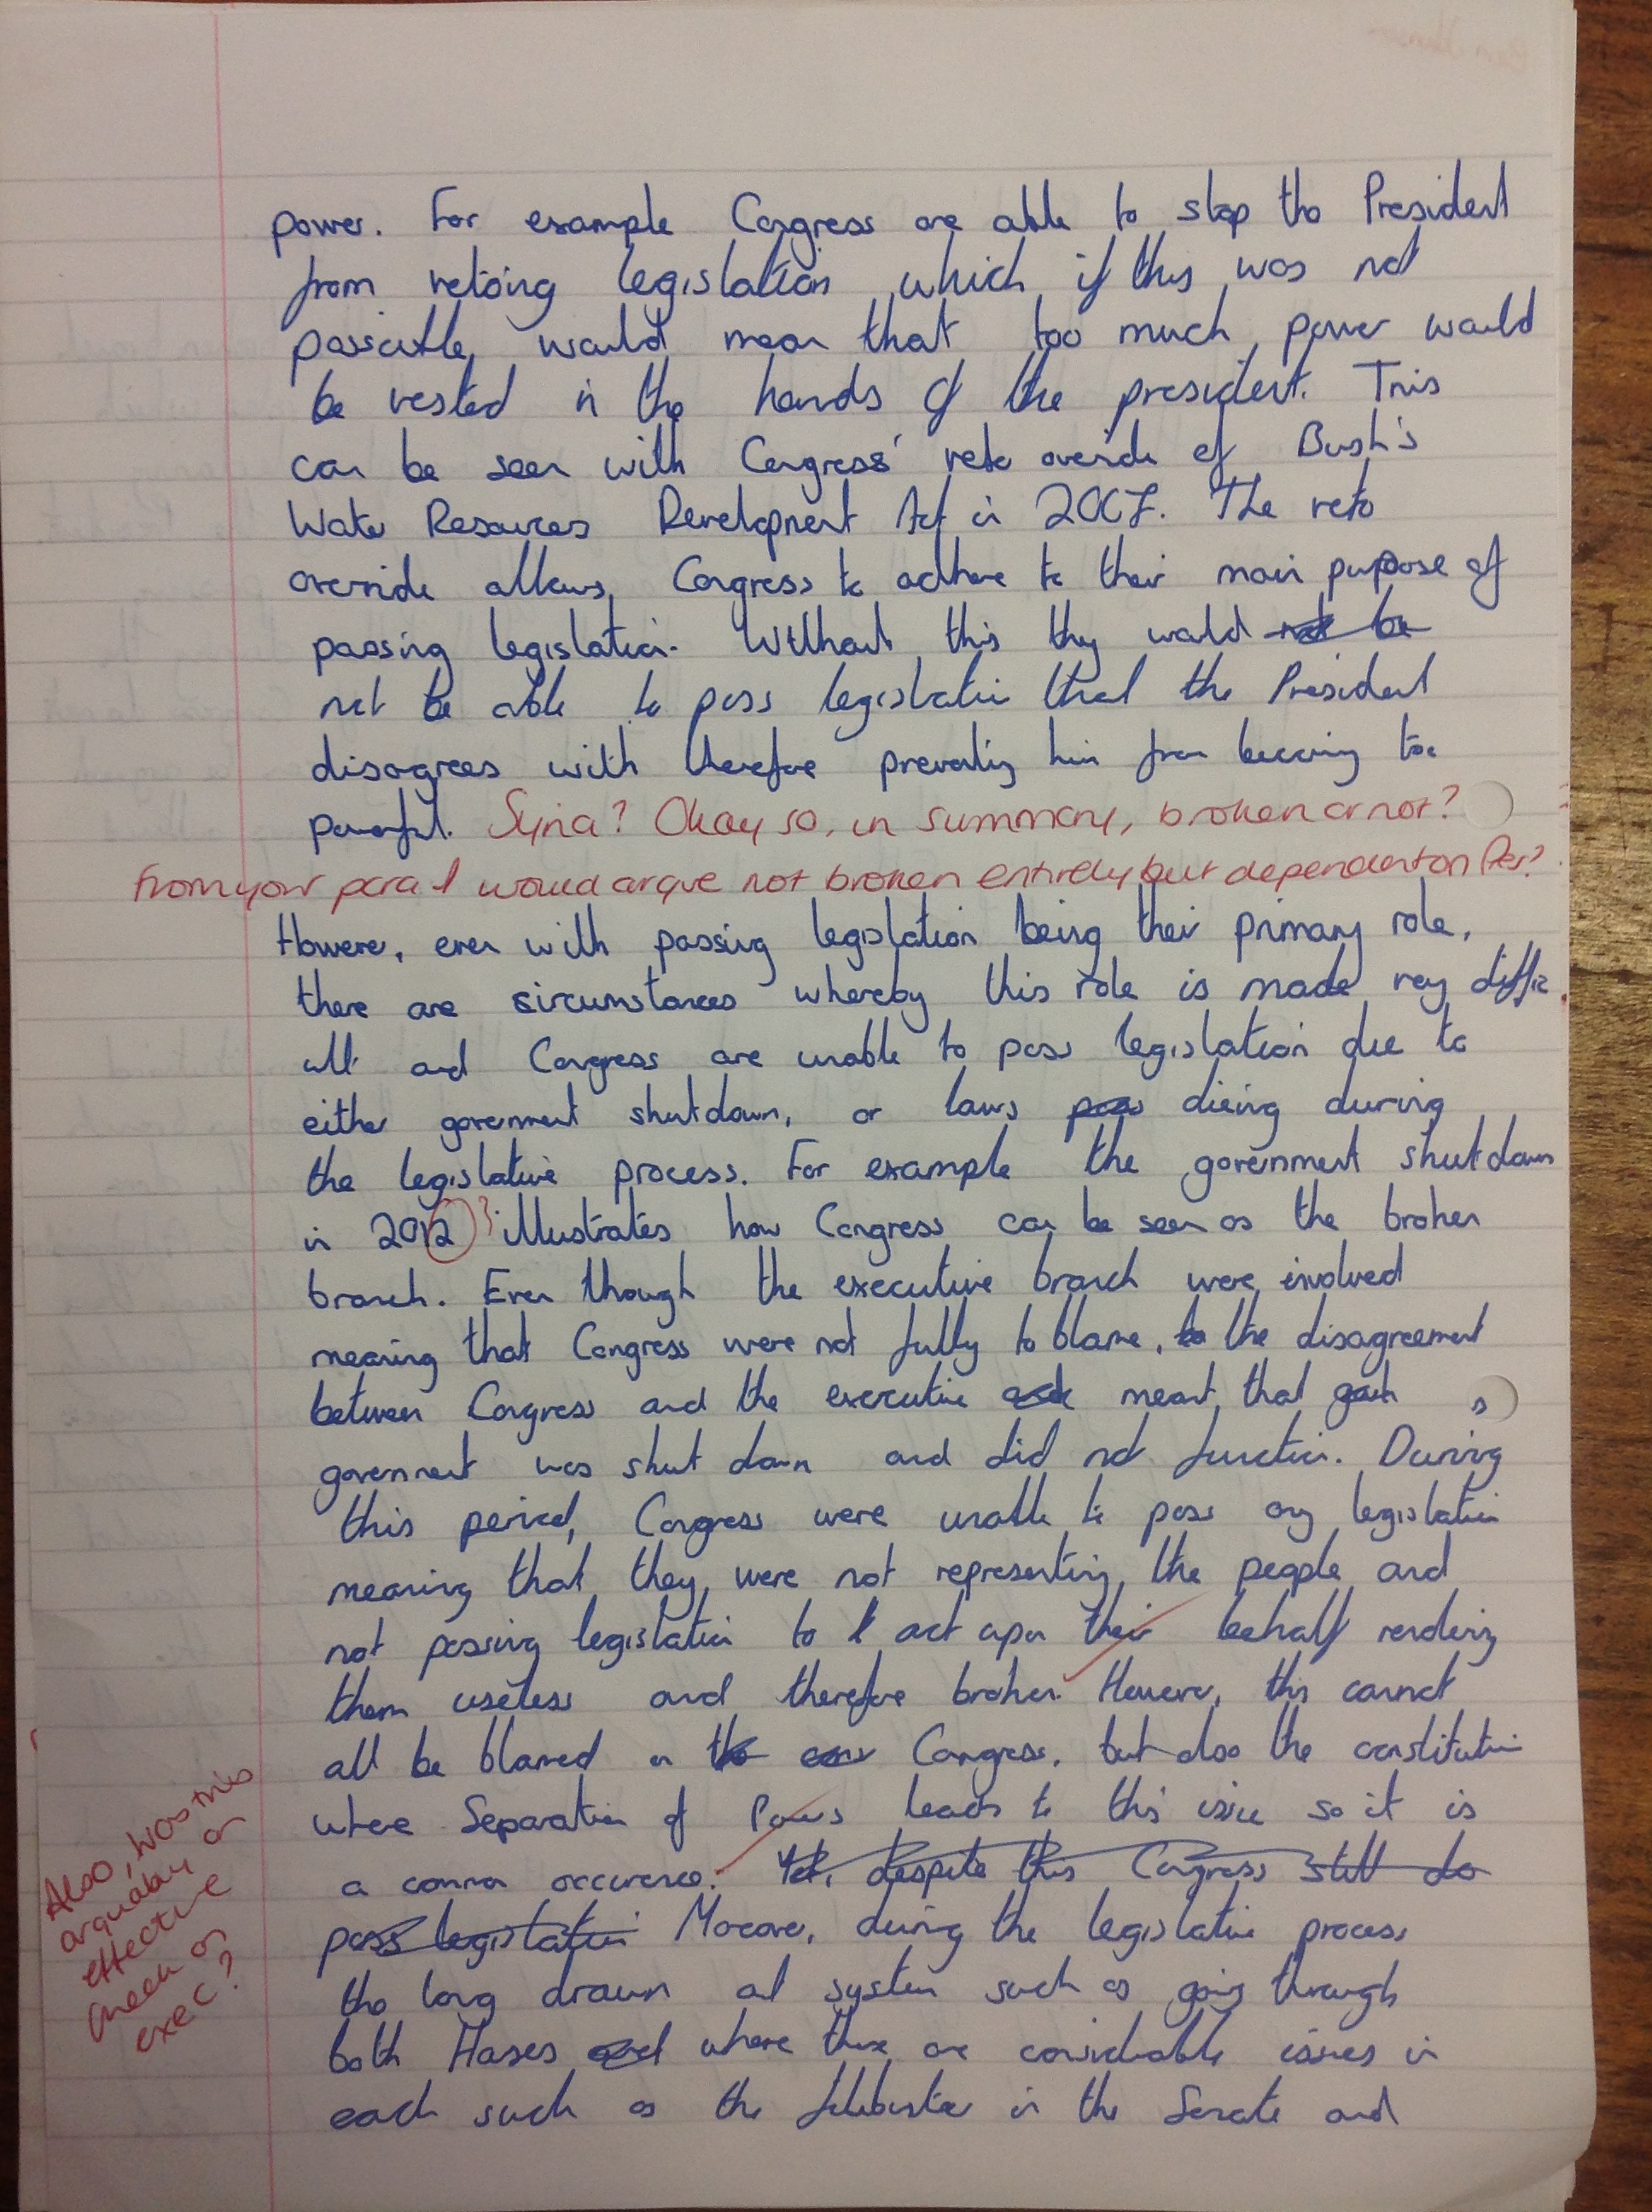 power. For example Congress are able to stop the President
from vetoing legislation which if this was not
possible, would mean that too much power would
be vested in the hands of the president. This
can be seen with Congress' veto overide of Bush's
Water Resources Development Act in 2007. The veto
override allows Congress to adhere to their main purpose of
passing legislation. Without this they would not be
not be able to pass legislation that the President
disagrees with therefore preventing him from becoming too
powerful. Syria? Okay so, in summary, broken or not?
From your para I would argue not broken entirely but dependent on Pres?
However, even with passing legislation being their primary role,
there are circumstances whereby this role is made very diffic
ult and Congress are unable to pass legislation due to
either government shutdown, or laws pass dieing during
the legislative process. For example the government shutdown
in 2012 ? illustrates how Congress can be seen as the broken
branch. Even though the executive branch were involved
meaning that Congress were not fully to blame, to the disagreement
between Congress and the executive meant that
government was shut down and did not function. During
this period, Congress were unable to pass any legislation
meaning that they were not representing the people and
not passing legislation to act upon their behalf rendering
them useless and therefore broken. However, this cannot
all be blamed on the Congress, but also the constitution
where Separation of Powers leads to this issue so it is
a common occurence. Yet, despite this Congress still do
pass legislation Moreover, during the legislative process
the long drawn out system such as going through
both Houses and where there are considerable issues in
each such as the filibuster in the Senate and
Also, was this
arguably an
effective
check on
exec?